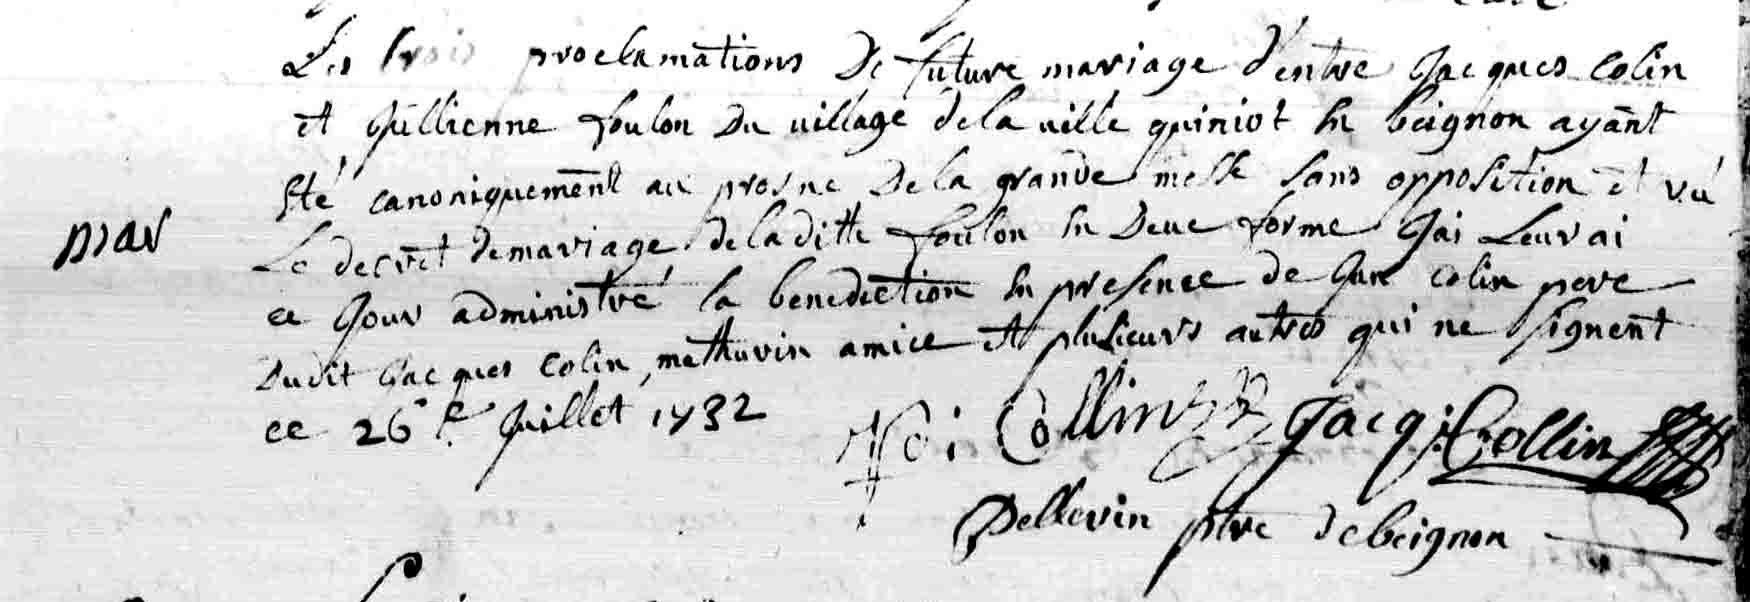 Les trois proclamations de future mariage d'entre Jacques Colin
et Jullienne foulon du village de la ville quiniot En beignon ayant
Eté canoniquement au prosne de la grande messe sans opposition et vu
mar
Le decret de mariage de la ditte foulon En Deue forme Jai
ce Jour administré la benediction En presence de Jan Colin pere
dudit Jacques Colin, mathurin amice et plusieurs autres qui ne signent
ce 26e Juillet 1732
Collin Jacq: Collin
ptre de beignon